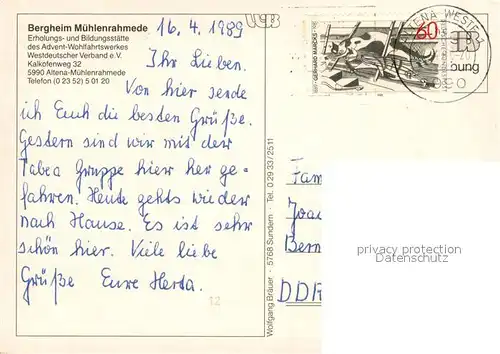 Bergheim Mühlenrahmede
Erholungs- und Bildungsstätte
des Advent-Wohlfahrtswerkes
Westdeutscher Verband e.V.
Kalkofenweg 32
5990 Altena-Mühlenrahmede
Telefon (0 23 52) 5 01 20
16.4.1989
Ihr Lieben.
Von hier sende
ich Euch die besten Grüße.
Gestern sind wir mit der
Tabea Gruppe hier her ge-
fahren. Heute gehts wieder
nach Hause. Es ist sehr
schön hier. Viele liebe
Grüße Eure Herta.
12
Wolfgang Bräuer · 5768 Sundern · Tel. 0 29 33/25 11
60
GERHARD MARCKS
ALTENA, WESTF
bung
Fam
Joa
Bern
DDR
privacy protection
www.ansichtskartenversand.com